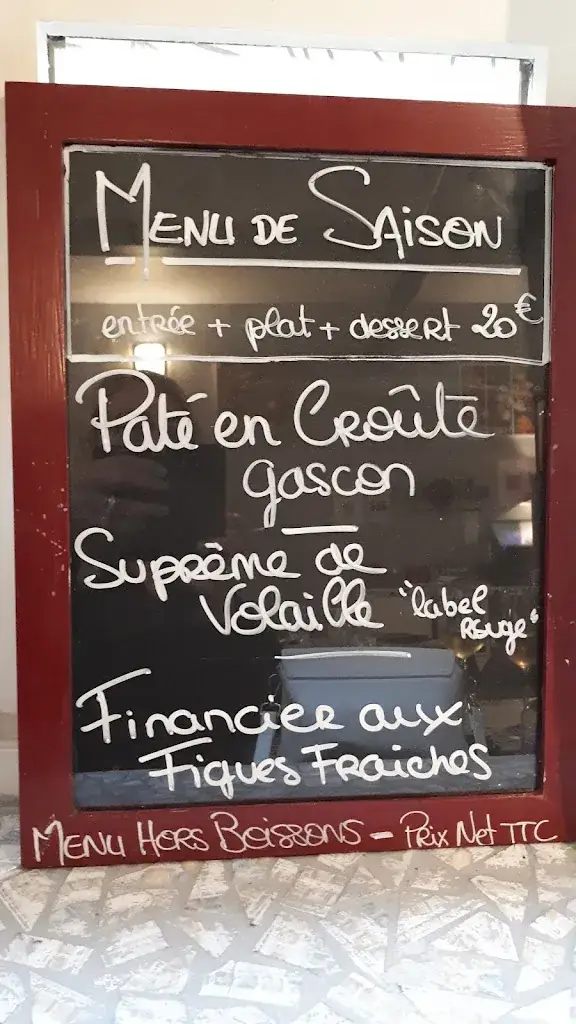 MENU DE SAISON
entrée + plat + dessert 20€
Paté en Croûte
gascon
Suprême de
Volaille "label
Rouge"
Financier aux
Figues Fraiches
MENU HORS BOISSONS - PRIX NET TTC